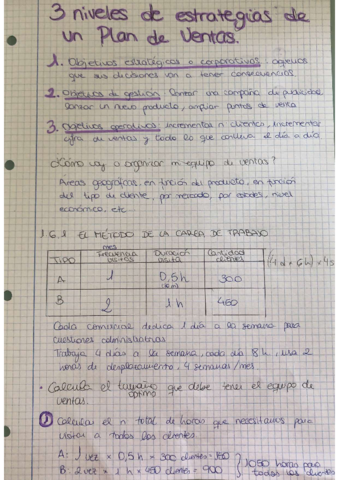 3 niveles de estrategias de
un Plan de Ventas.
1. Objetivos estratégicos o corporativos: aquellos
que sus decisiones van a tener consecuencias.
2. Objetivos de gestión: lanzar una campaña de publicidad,
lanzar un nuevo producto, ampliar puntos de venta
3. Objetivos operativos: incrementar n clientes, incrementar
cifra de ventas y todo lo que conlleva el día a día
¿Cómo voy a organizar mi equipo de ventas?
Áreas geográficas, en función del producto, en función
del tipo de cliente, por mercado, por edades, nivel
económico, etc
1.6.1 EL MÉTODO DE LA CARGA DE TRABAJO
mes
TIPO Frecuencia visitas Duración visita Cantidad clientes
A 1 0,5h 300
B 2 1h 450
Cada comercial dedica 1 día a la semana para
cuestiones administrativas
Trabaja 4 días a la semana, cada día 8h, usa 2
horas de desplazamiento, 4 semanas/mes.
• Calcula el tamaño óptimo que debe tener el equipo de
ventas.
① Calcular el n total de horas que necesitamos para
visitar a todos los clientes.
A: 1 vez x 0,5h x 300 clientes = 150
B: 2 vez x 1h x 450 clientes = 900
1050 horas para
todos los clientes